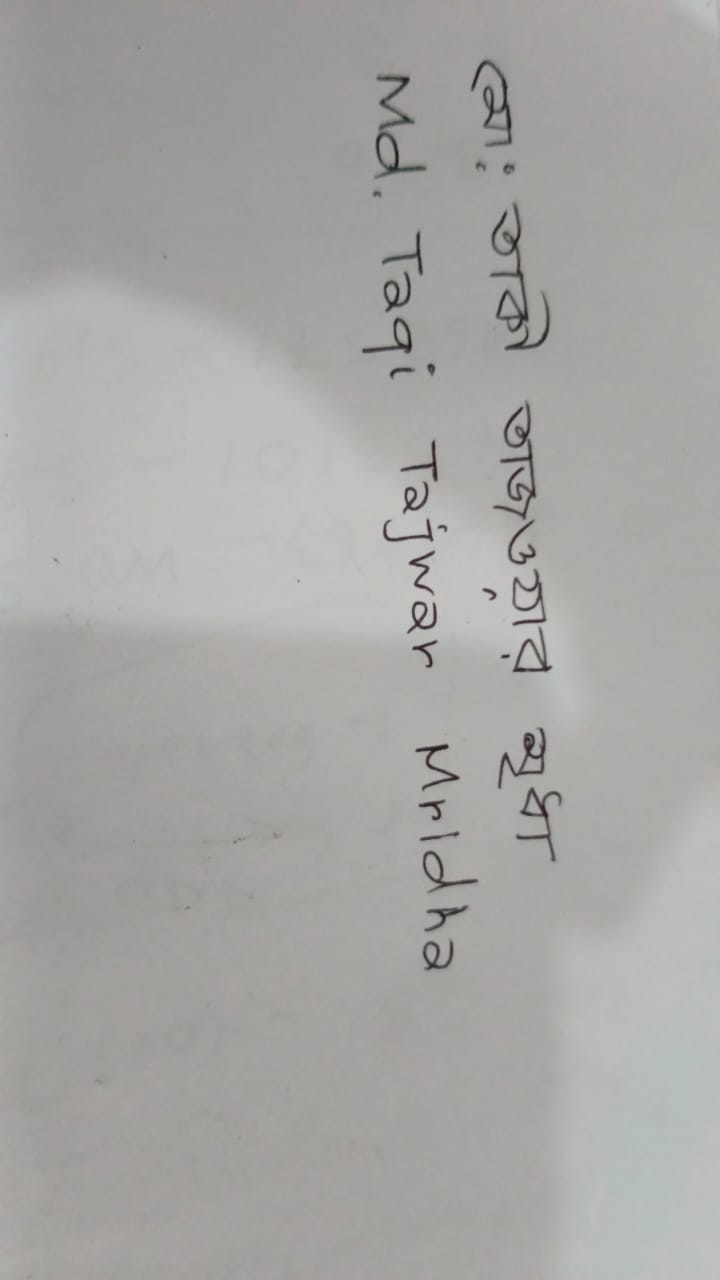 মো: তাকী তাজওয়ার মৃধা
Md. Taqi Tajwar Mridha